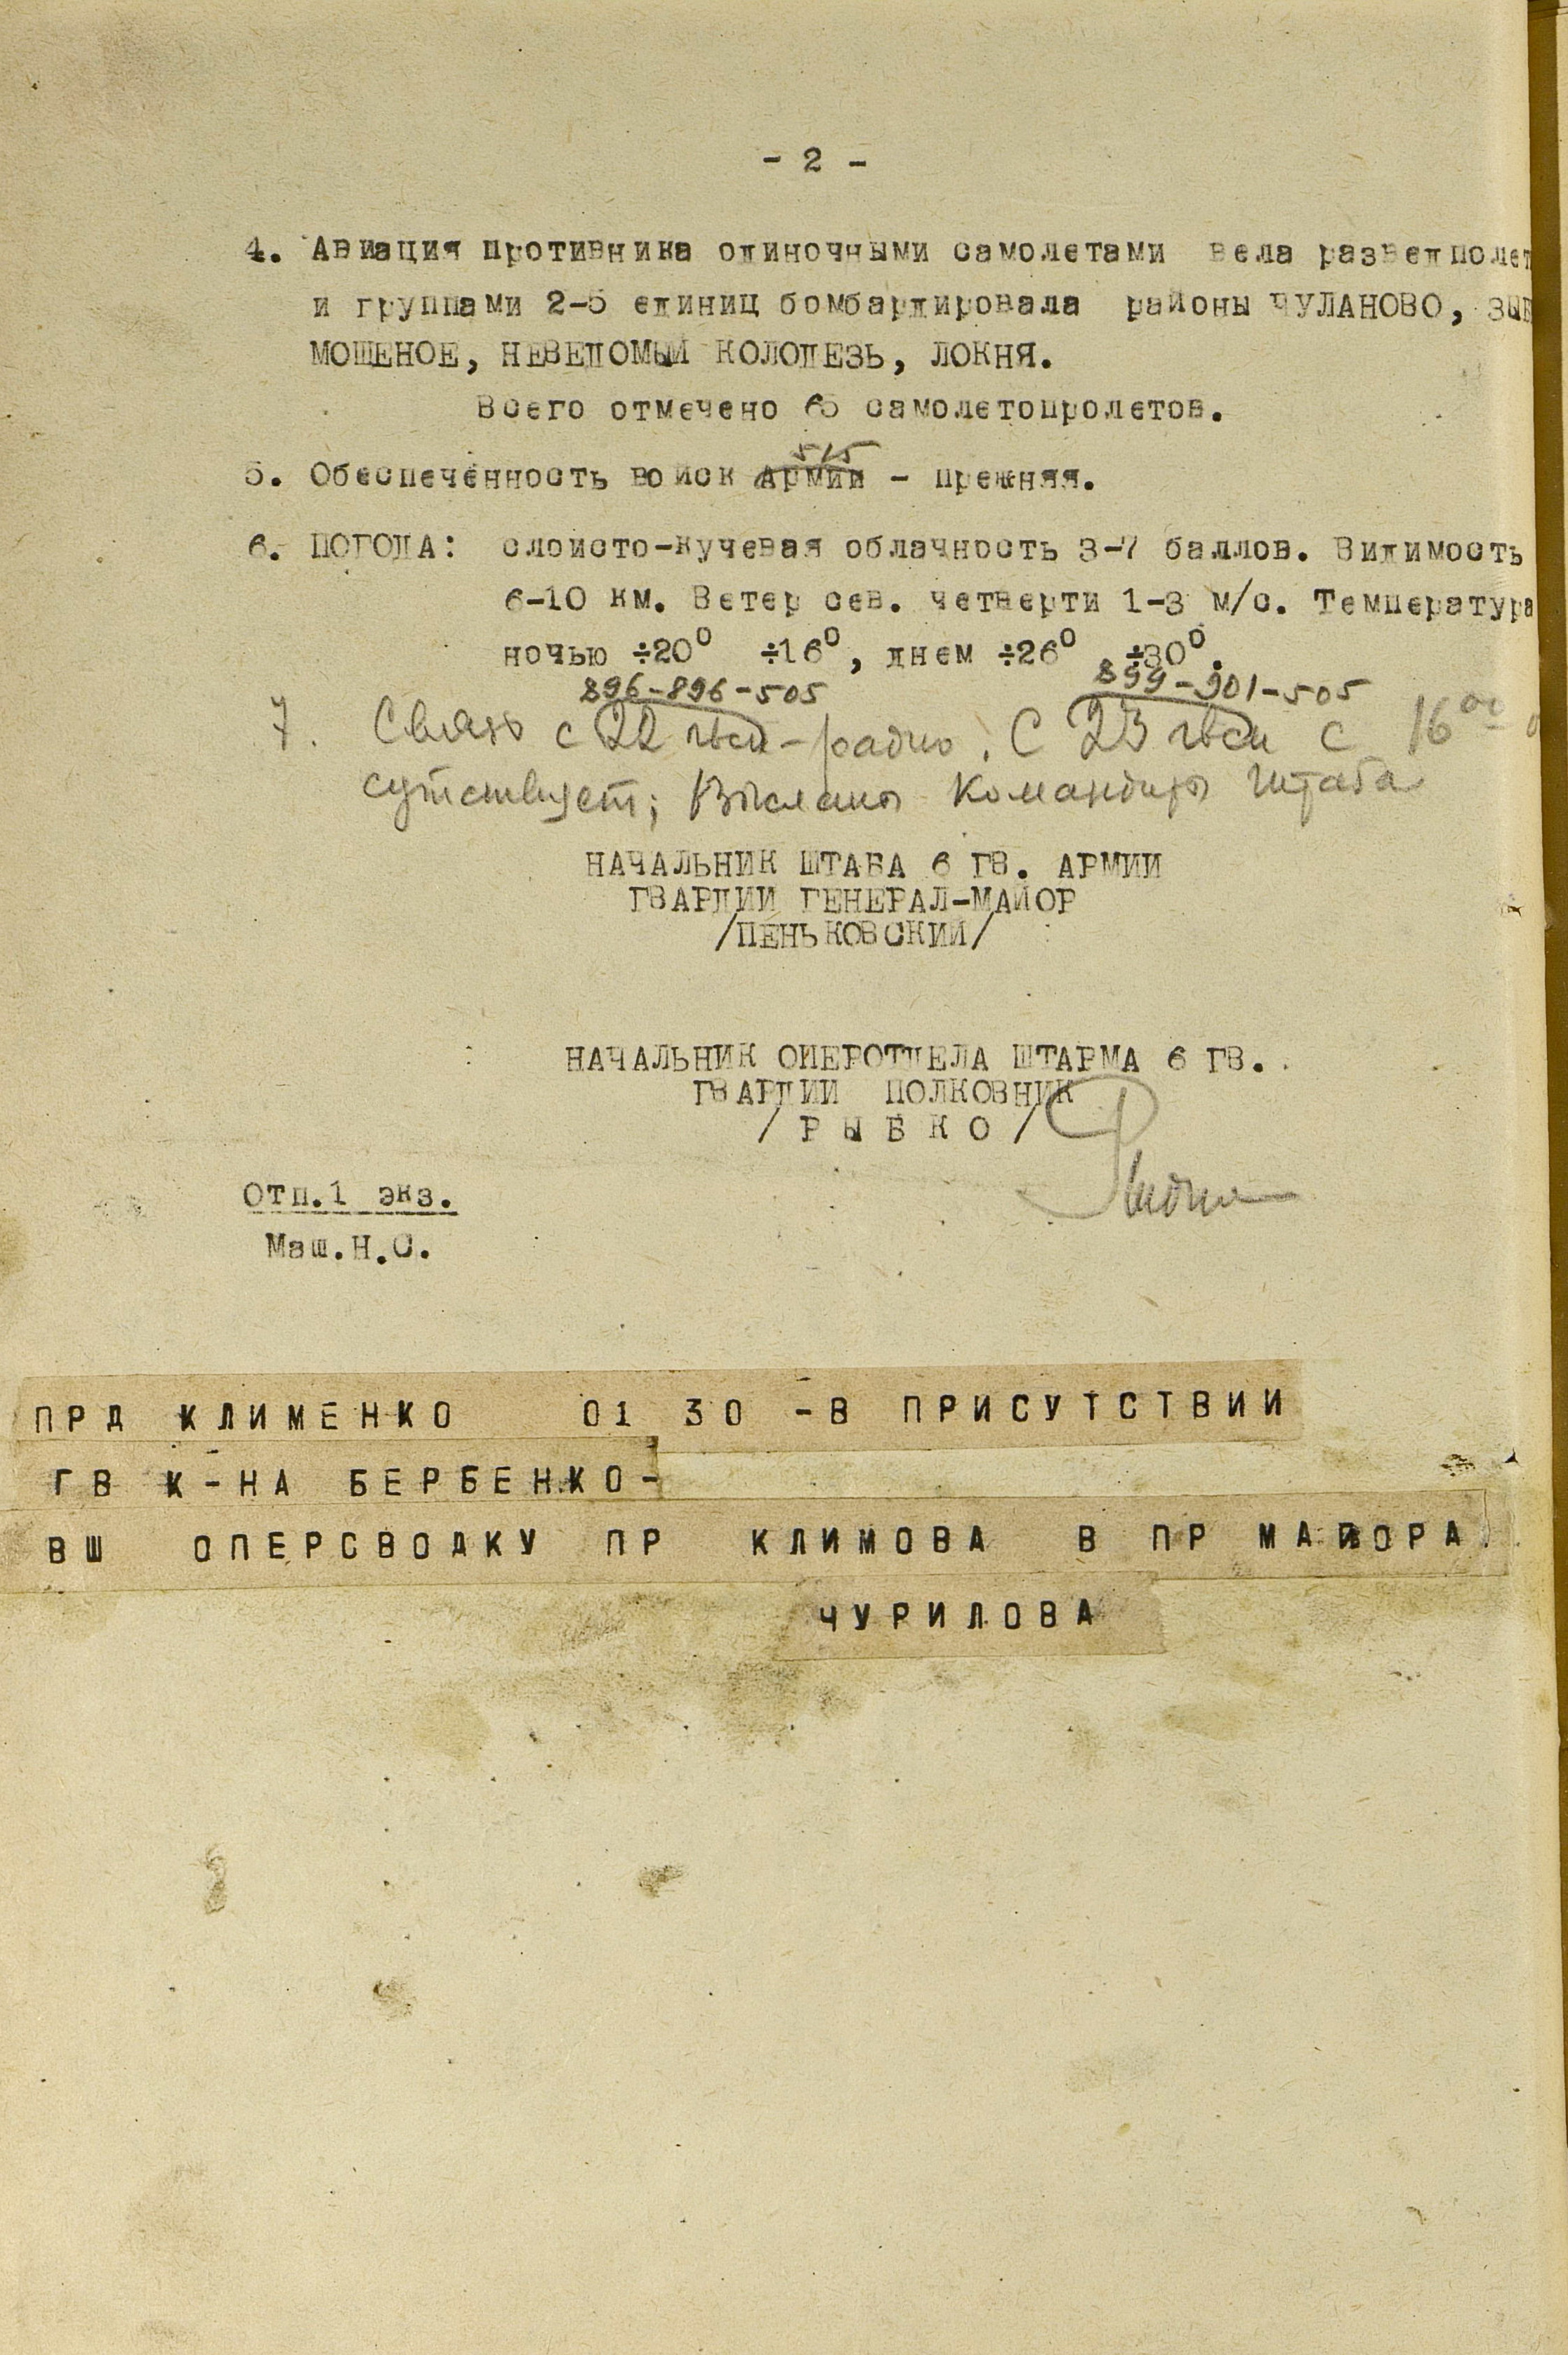 - 2 -
4. Авиация противника одиночными самолетами вела разведполет
и группами 2-5 единиц бомбардировала районы ЧУЛАНОВО,
МОЩЕНОЕ, НЕВЕДОМЫЙ КОЛОДЕЗЬ, ЛОКНЯ.
Всего отмечено 65 самолетопролетов.
515
5. Обеспеченность войск армии - прежняя.
6. ПОГОДА: слоисто-кучевая облачность 3-7 баллов. Видимость
6-10 км. Ветер сев. четверти 1-3 м/с. Температура
ночью ÷20⁰ ÷16⁰, днем ÷26⁰ ÷30⁰.
896-896-505 899-901-505
7. Связь с 22 гвск - радио. С 23 гвск с 16⁰⁰ о
сутствует; Высланы командиры штаба
НАЧАЛЬНИК ШТАБА 6 ГВ. АРМИИ
ГВАРДИИ ГЕНЕРАЛ-МАЙОР
/ПЕНЬКОВСКИЙ/
НАЧАЛЬНИК ОПЕРОТДЕЛА ШТАРМА 6 ГВ.
ГВАРДИИ ПОЛКОВНИК
/РЫБКО/
Отп.1 экз.
Маш.Н.С.
ПРД КЛИМЕНКО 01 30 -В ПРИСУТСТВИИ
ГВ К-НА БЕРБЕНКО-
ВШ ОПЕРСВОДКУ ПР КЛИМОВА В ПР МАЙОРА
ЧУРИЛОВА